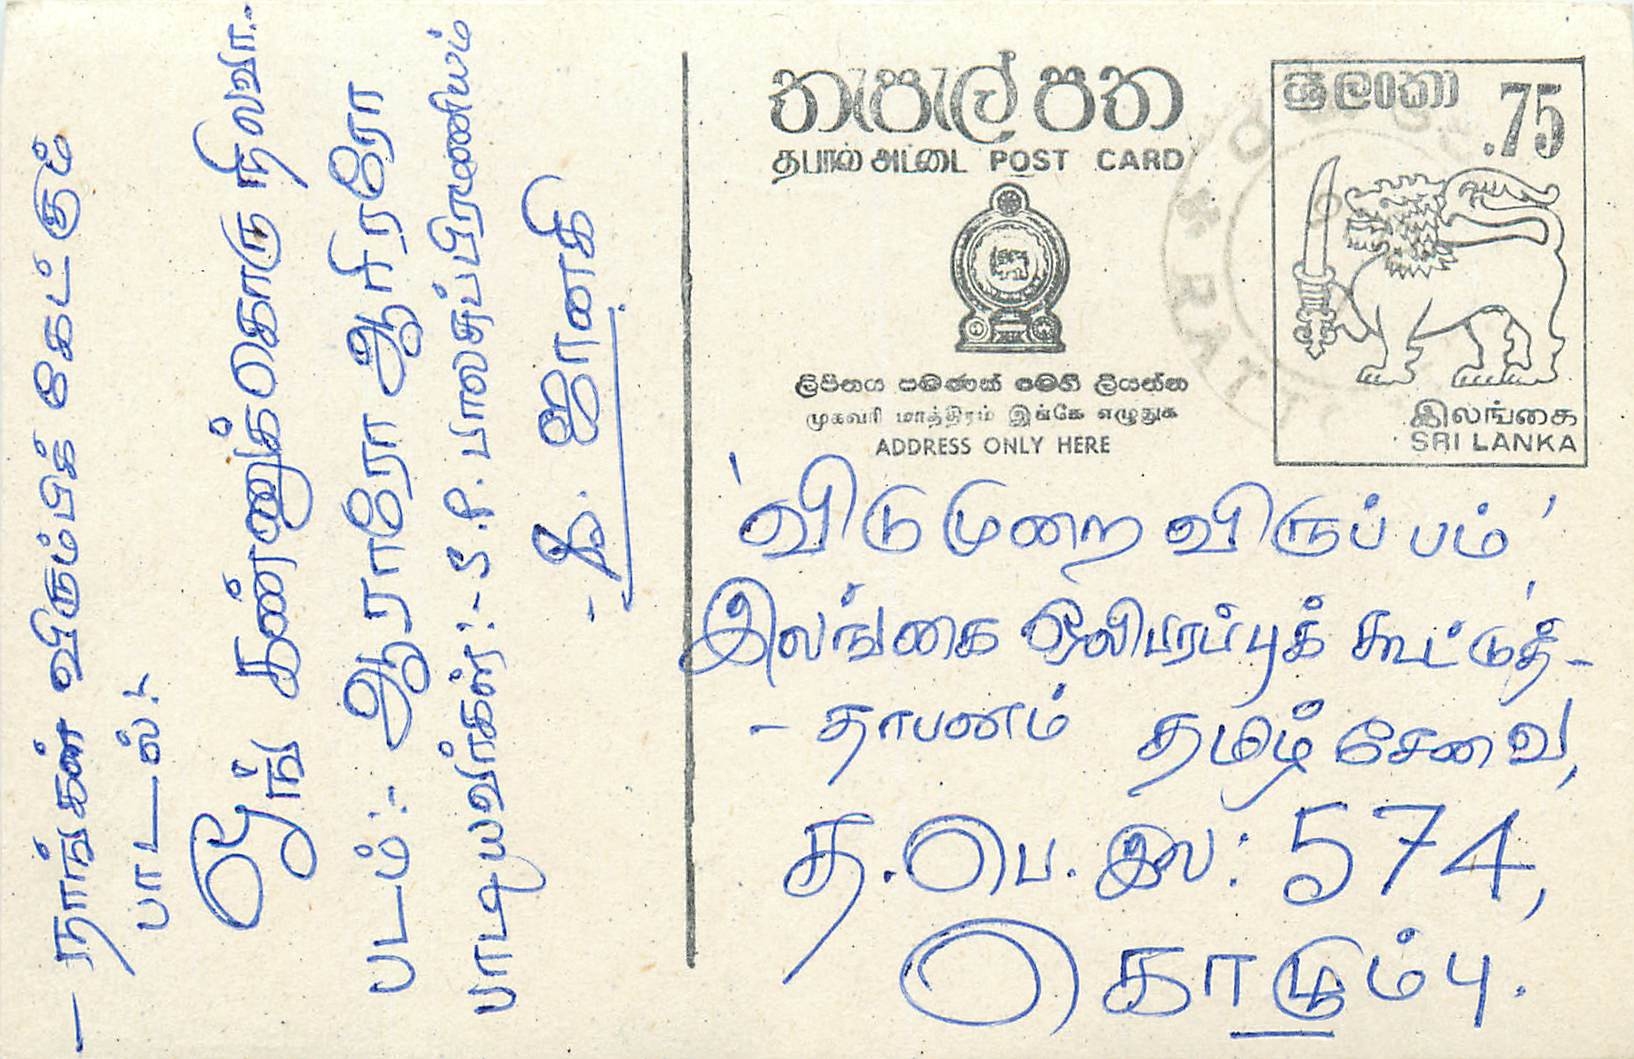 - நாங்கள் விரும்பிக் கேட்கும்
பாடல்:-
ஏங் கண்ணுக்கொரு நிலவா..
படம்:- ஆராரோ ஆரிரரோ
பாடியவர்கள்:- S.P. பாலசுப்பிரமணியம்
- S. ஜானகி
තැපැල් පත
தபால் அட்டை POST CARD
ලිපිනය පමණක් මෙහි ලියන්න
முகவரி மாத்திரம் இங்கே எழுதுக
ADDRESS ONLY HERE
ශ්‍රී ලංකා
.75
இலங்கை
SRI LANKA
RATT
'விடுமுறை விருப்பம்'
இலங்கை ஒலிபரப்புக் கூட்டுத்-
- தாபனம் தமிழ் சேவை,
த.பெ.இல: 574,
கொழும்பு.